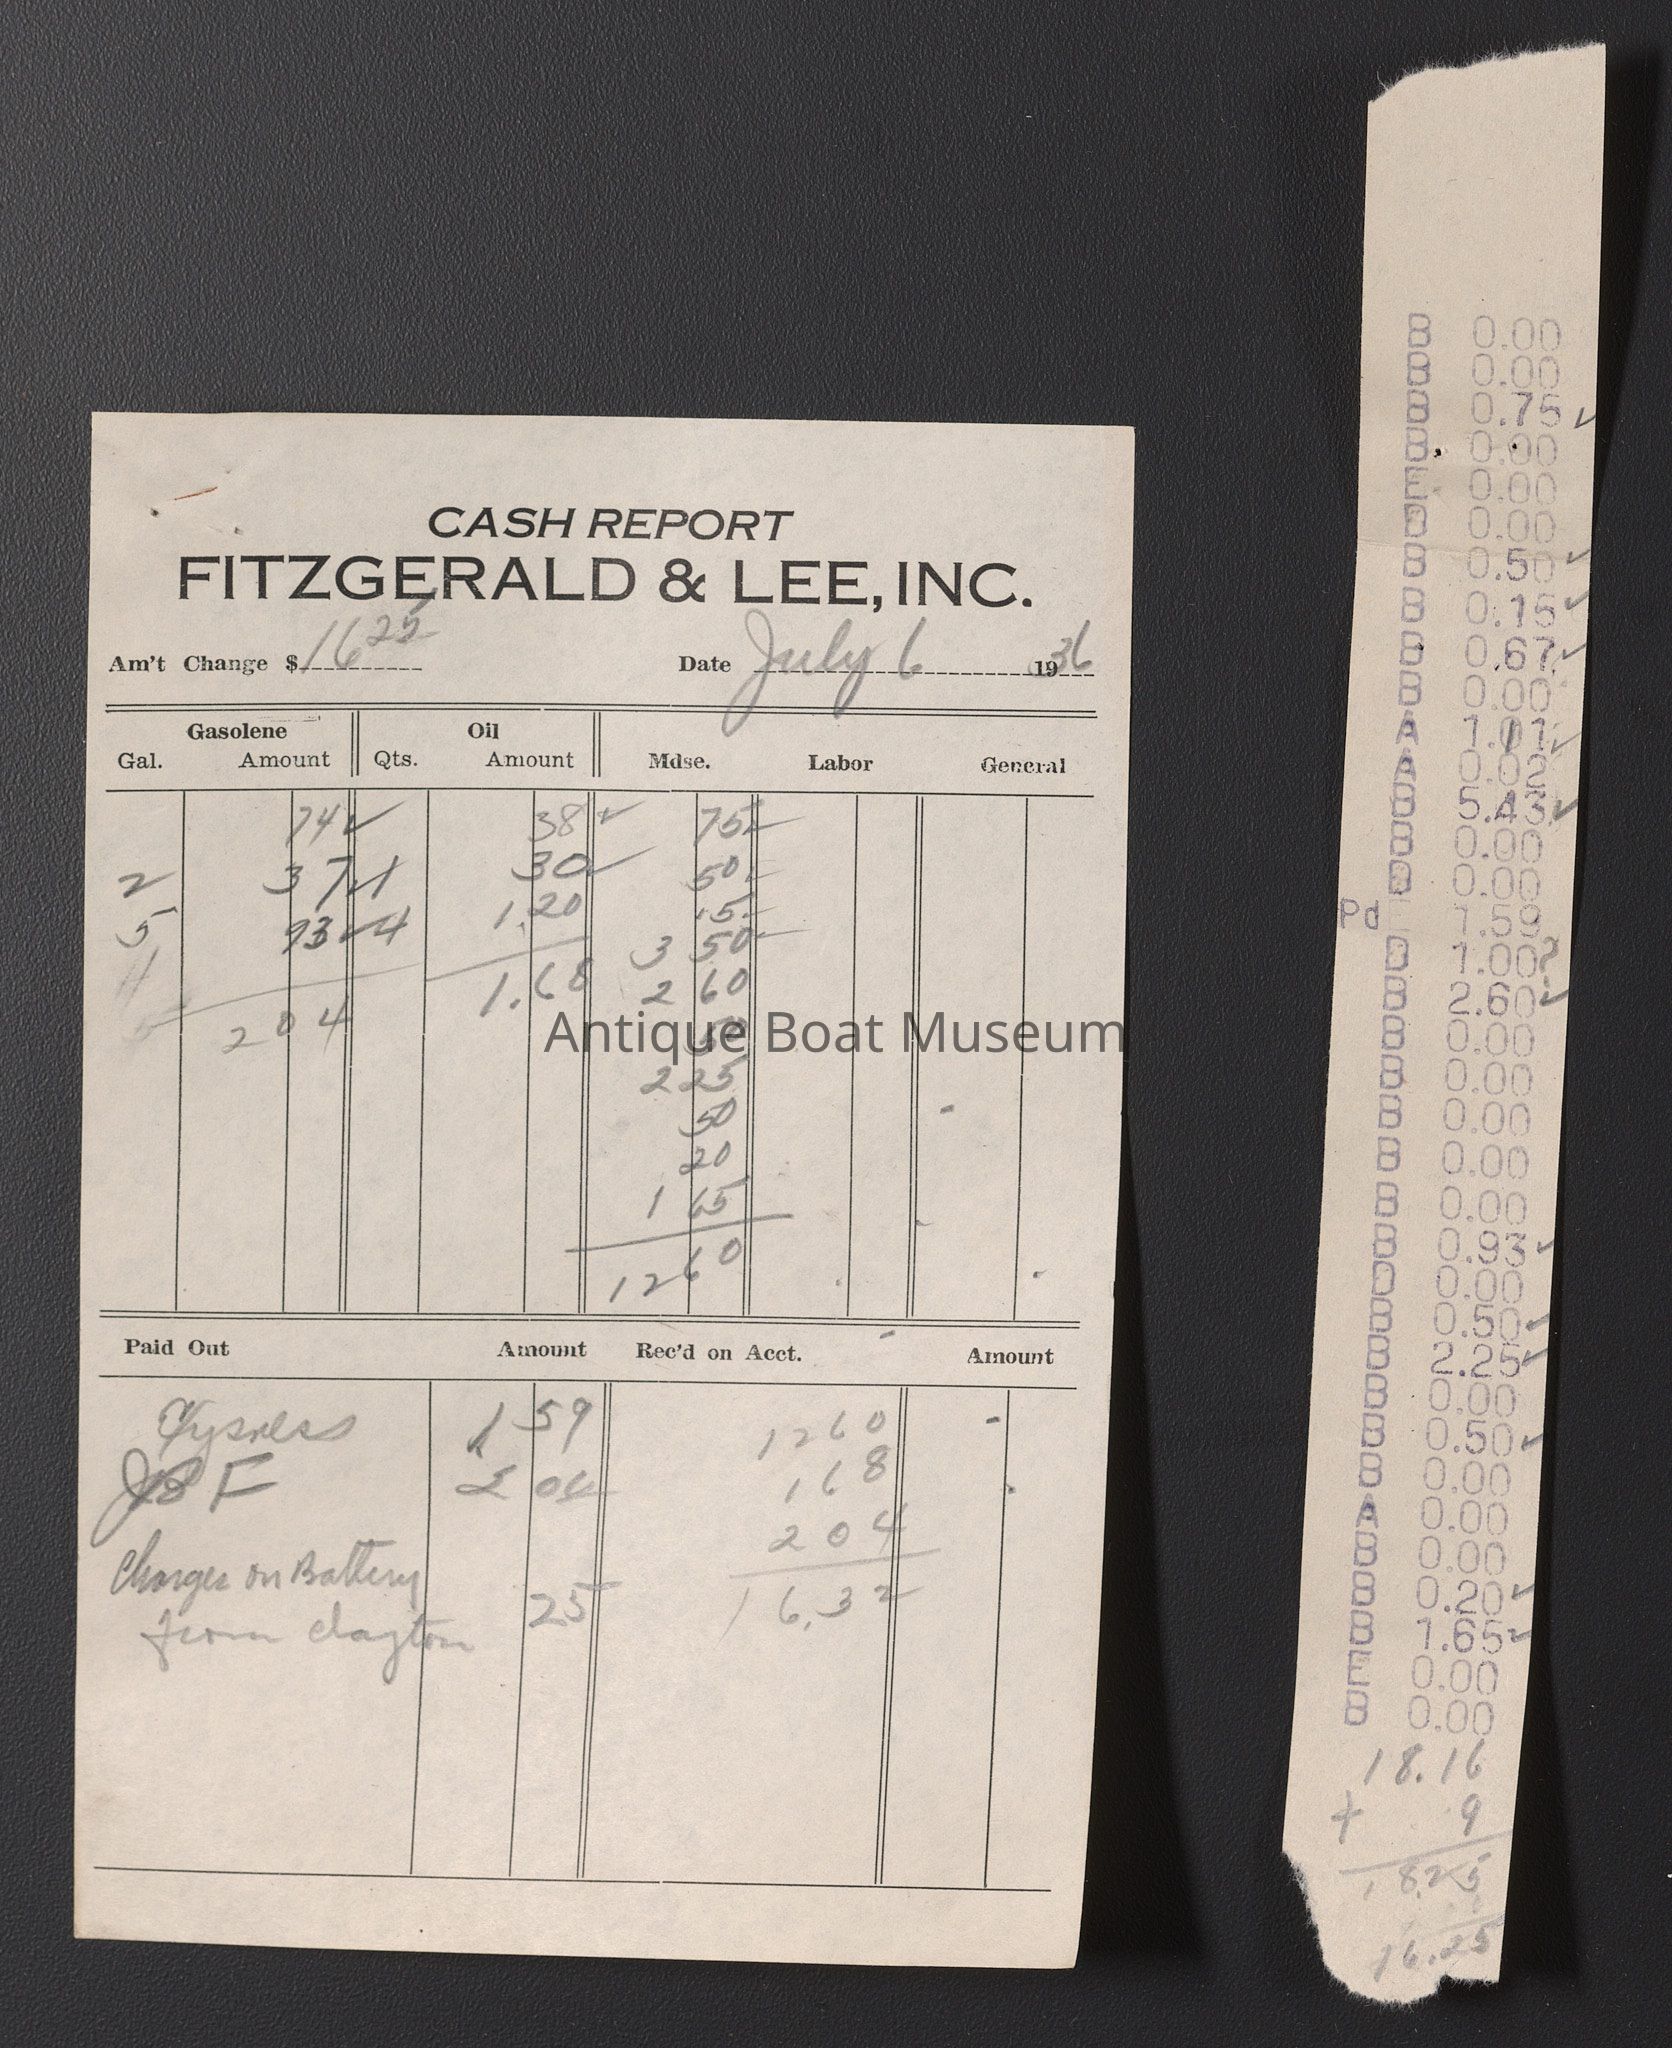 CASH REPORT
FITZGERALD & LEE, INC.
Am't Change $ 16 25 Date July 6 1936
Gasolene Oil
Gal. Amount Qts. Amount Mdse. Labor General
74 ✓ 38 ✓ 75 ✓
2 37 ✓ 30 ✓ 50 ✓
5 93 ✓ 1.20 15 ✓
3 50 ✓
1.68 2 60
2 04 50
2 25
50
20
1 65
12 60
Antique Boat Museum
Paid Out Amount Rec'd on Acct. Amount
1 59 12 60
1 68
2 04
Charges on Battery 16.32
from Clayton 25
B 0.00
B 0.00
B 0.75 ✓
B 0.00
E 0.00
B 0.00
B 0.50 ✓
B 0.15 ✓
B 0.67 ✓
B 0.00
A 1.01 ✓
A 0.02
B 5.43 ✓
B 0.00
B 0.00
Pd 1.59
B 1.00 ?
B 2.60 ✓
B 0.00
B 0.00
B 0.00
B 0.00
B 0.00
B 0.93 ✓
D 0.00
B 0.50 ✓
B 2.25 ✓
B 0.00
B 0.50 ✓
B 0.00
A 0.00
B 0.00
B 0.20 ✓
B 1.65 ✓
E 0.00
B 0.00
18.16
+ 9
18.25
16.25